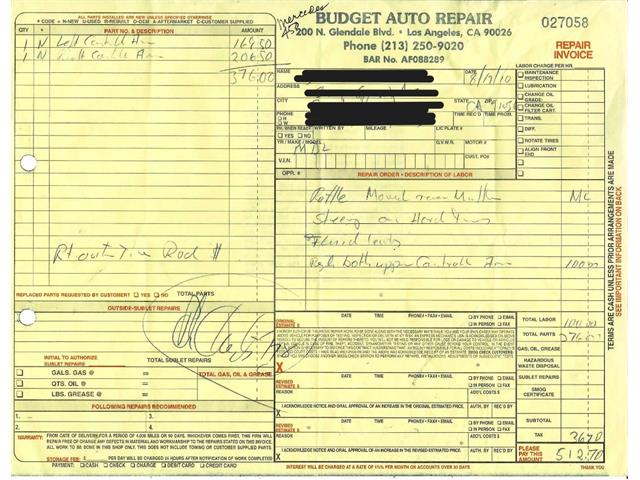 ALL PARTS INSTALLED ARE NEW UNLESS SPECIFIED OTHERWISE
* CODE = N-NEW U-USED R-REBUILT O-OEM A-AFTERMARKET C-CUSTOMER SUPPLIED
QTY * PART NO. & DESCRIPTION AMOUNT
1 N Left Controll Arm 169.50
1 N Controll Arm 206.50
376.00
Rt outer Tie Rod #
REPLACED PARTS REQUESTED BY CUSTOMER? YES NO TOTAL PARTS
OUTSIDE-SUBLET REPAIRS
INITIAL TO AUTHORIZE SUBLET REPAIRS TOTAL SUBLET REPAIRS
GALS. GAS @ = TOTAL GAS, OIL & GREASE
QTS. OIL @ =
LBS. GREASE @ =
FOLLOWING REPAIRS RECOMMENDED
1.
2. 4.
WARRANTY: FROM DATE OF DELIVERY FOR A PERIOD OF 4,000 MILES OR 90 DAYS, WHICHEVER COMES FIRST, THIS FIRM WILL
REPAIR FREE OF CHARGE ANY DEFECTS IN MATERIAL AND WORKMANSHIP TO THE REPAIRS STATED ON THIS INVOICE.
ALL OTHER CONDITIONS WILL BE SUBJECT TO NORMAL CHARGES. THIS DOES NOT INCLUDE TOWING OR CUSTOMER SUPPLIED PARTS.
STORAGE FEE: $ PER DAY WILL BE CHARGED 24 HOURS AFTER NOTIFICATION OF WORK COMPLETED
PAYMENT: CASH CHECK CHARGE DEBIT CARD CREDIT CARD
Mercedes
BUDGET AUTO REPAIR
200 N. Glendale Blvd. • Los Angeles, CA 90026
Phone (213) 250-9020
BAR No. AF088289
027058
REPAIR INVOICE
NAME DATE 8/17/10
ADDRESS
CITY STATE CA ZIP
PHONE H W TIME REC'D TIME PROM.
PH. WHEN READY YES NO WRITTEN BY MILEAGE LIC PLATE #
YR./ MAKE / MODEL G.V.W.R. MOTOR #
V.I.N. CUST. PO#
OPR. # REPAIR ORDER - DESCRIPTION OF LABOR
LABOR CHARGE PER HR.
MAINTENANCE INSPECTION
LUBRICATION
CHANGE OIL
CHANGE OIL FILTER CART.
TRANS.
DIFF.
ROTATE TIRES
ALIGN FRONT END
NC
Steering on Hard Turns
Fluid
both upper Controll Arm 100.00
ORIGINAL ESTIMATE $ DATE TIME PHONE# / FAX# / EMAIL BY PHONE EMAIL IN PERSON FAX
X
REVISED ESTIMATE $ DATE TIME PHONE# / FAX# / EMAIL BY PHONE EMAIL IN PERSON FAX
ADD'L COSTS $
X I ACKNOWLEDGE NOTICE AND ORAL APPROVAL OF AN INCREASE IN THE ORIGINAL ESTIMATED PRICE. AUTH. BY REC'D BY
REVISED ESTIMATE $ DATE TIME PHONE# / FAX# / EMAIL BY PHONE EMAIL IN PERSON FAX
ADD'L COSTS $
X I ACKNOWLEDGE NOTICE AND ORAL APPROVAL OF AN INCREASE IN THE REVISED ESTIMATED PRICE. AUTH. BY REC'D BY
INTEREST WILL BE CHARGED AT A RATE OF 1½% PER MONTH ON ACCOUNTS OVER 30 DAYS
TOTAL LABOR 100.00
TOTAL PARTS 376.00
GAS, OIL, GREASE
HAZARDOUS WASTE DISPOSAL
SUBLET REPAIRS
SMOG CERTIFICATE
SUBTOTAL
TAX 36.70
PLEASE PAY THIS AMOUNT 512.70
THANK YOU
TERMS ARE CASH UNLESS PRIOR ARRANGEMENTS ARE MADE
SEE IMPORTANT INFORMATION ON BACK